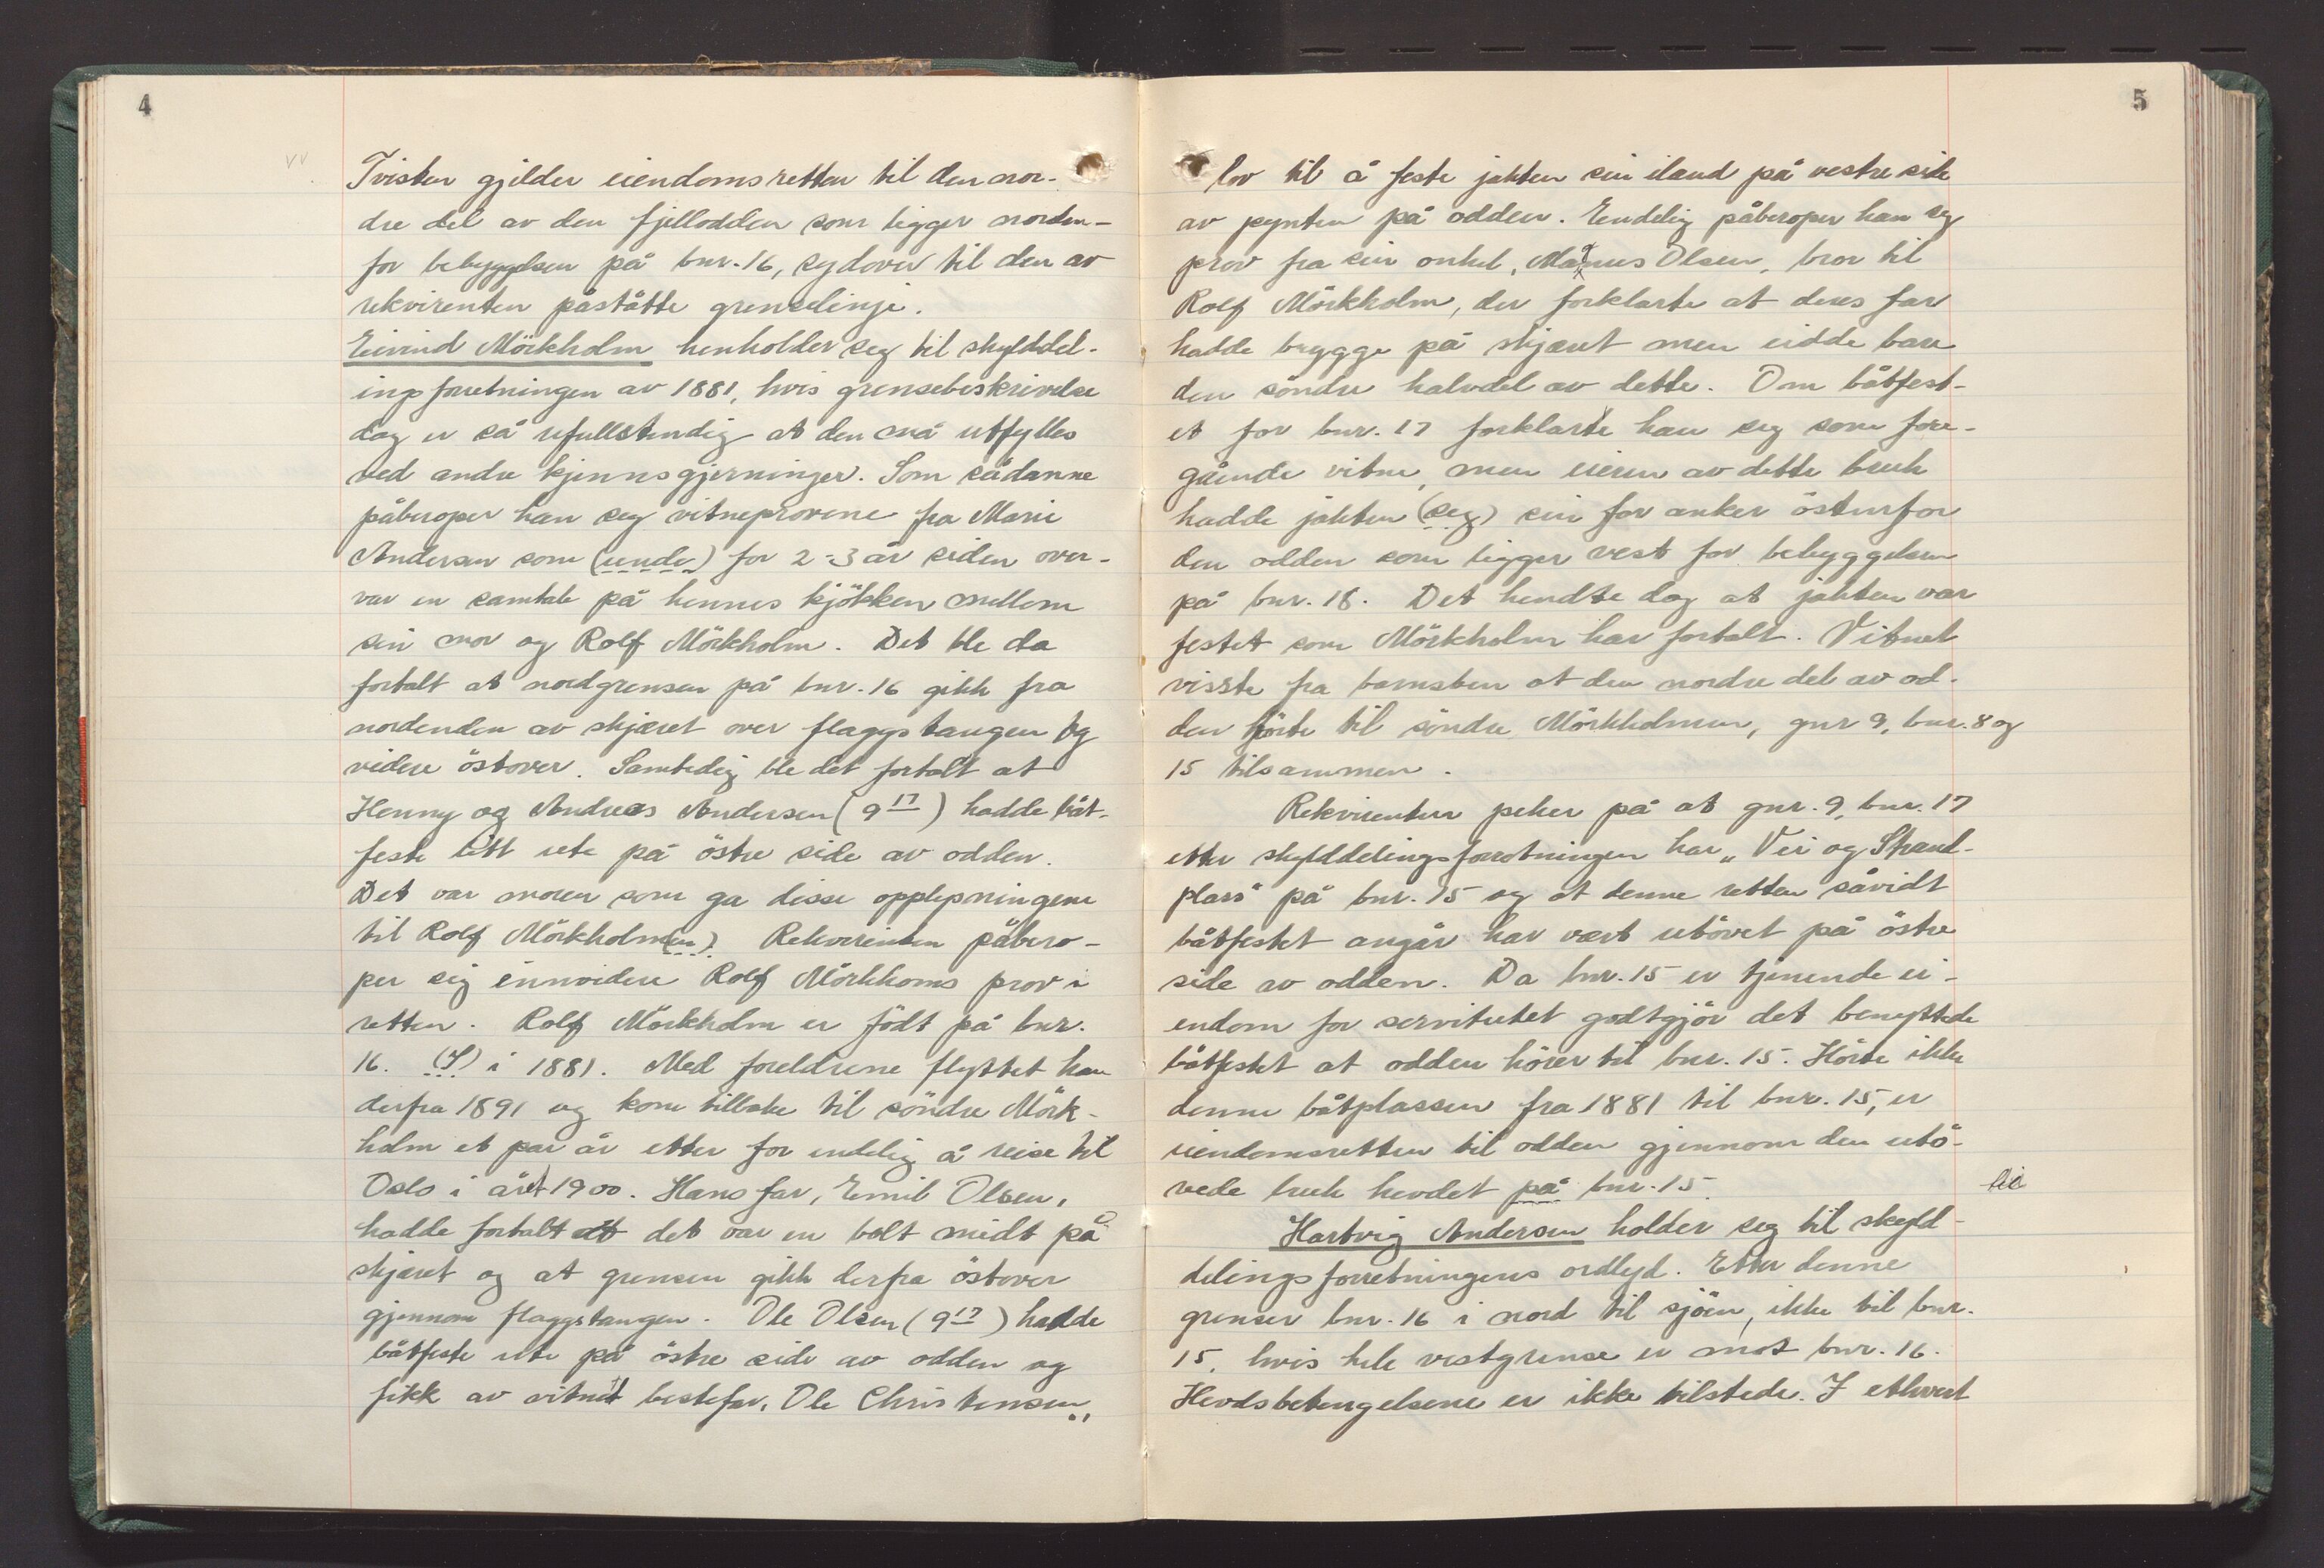 4
Tvisten gjelder eiendomsretten til den nor-
dre del av den fjellodden som ligger norden-
for bebyggelsen på bnr. 16, sydover til den av
rekvirenten påståtte grenselinje.
Eivind Mörkholm henholder seg til skylddel-
ingsforretningen av 1881, hvis grensebeskrivelse
dog er så ufullstendig at den må utfylles
ved andre kjennsgjerninger. Som sådanne
påberoper han seg vitneprovene fra Marie
Andersen som (unde) for 2-3 år siden over-
var en samtale på hennes kjökken mellem
sin mor og Rolf Mörkholm. Det ble da
fortalt at nordgrensen på bnr. 16 gikk fra
nordenden av skjæret over flaggstangen og
videre östover. Samtidig ble det fortalt at
Henny og Andreas Andersen (9 17) hadde båt-
feste litt ute på östre side av odden.
Det var moren som ga disse opplysningene
til Rolf Mörkholm(en). Rekvirenten påbero-
per seg ennvidere Rolf Mörkhoms prov i
retten. Rolf Mörkholm er födt på bnr.
16. (I) i 1881. Med foreldrene flyttet han
derfra 1891 og kom tilbake til söndre Mörk-
holm et par år etter for endelig å reise til
Oslo i året 1900. Hans far, Emil Olsen,
hadde fortalt at det var en bolt midt på
skjæret og at grensen gikk derfra östover
gjennom flaggstangen. Ole Olsen (9 17) hadde
båtfeste ute på östre side av odden og
fikk av vitnets bestefar, Ole Christensen,
5
lov til å feste jakten sin iland på vestre side
av pynten på odden. Endelig påberoper han seg
prov fra sin onkel, Magnus Olsen, bror til
Rolf Mörkholm, der forklarte at deres far
hadde brygge på skjæret men eidde bare
den söndre halvdel av dette. Om båtfest-
et for bnr. 17 forklarte han seg som fore-
gående vitne, men eieren av dette bruk
hadde jakten (seg) sin for anker östenfor
den odden som ligger vest for bebyggelsen
på bnr. 18. Det hendte dog at jakten var
festet som Mörkholm har fortalt. Vitnet
visste fra barnsben at den nordre del av od-
den hörte til söndre Mörkholmen, gnr 9, bnr. 8 og
15 tilsammen.
Rekvirenten peker på at gnr. 9, bnr. 17
etter skylddelingsforretningen har „Vei og Strand-
plass" på bnr. 15 og at denne retten såvidt
båtfestet angår har vært utövet på östre
side av odden. Da bnr. 15 er tjenende ei-
endom for servitutet godtgjör det benyttede
båtfestet at odden hörer til bnr. 15. Hörte ikke
denne båtplassen fra 1881 til bnr. 15, er
eiendomsretten til odden gjennom den utö-
vede bruk hevdet på bnr. 15. til
Hartvig Andersen holder seg til skyld-
delingsforretningens ordlyd. Etter denne
grenser bnr. 16 i nord til sjöen, ikke til bnr.
15, hvis hele vestgrense er mot bnr. 16.
Hevdsbetingelsene er ikke tilstede. I ethvert